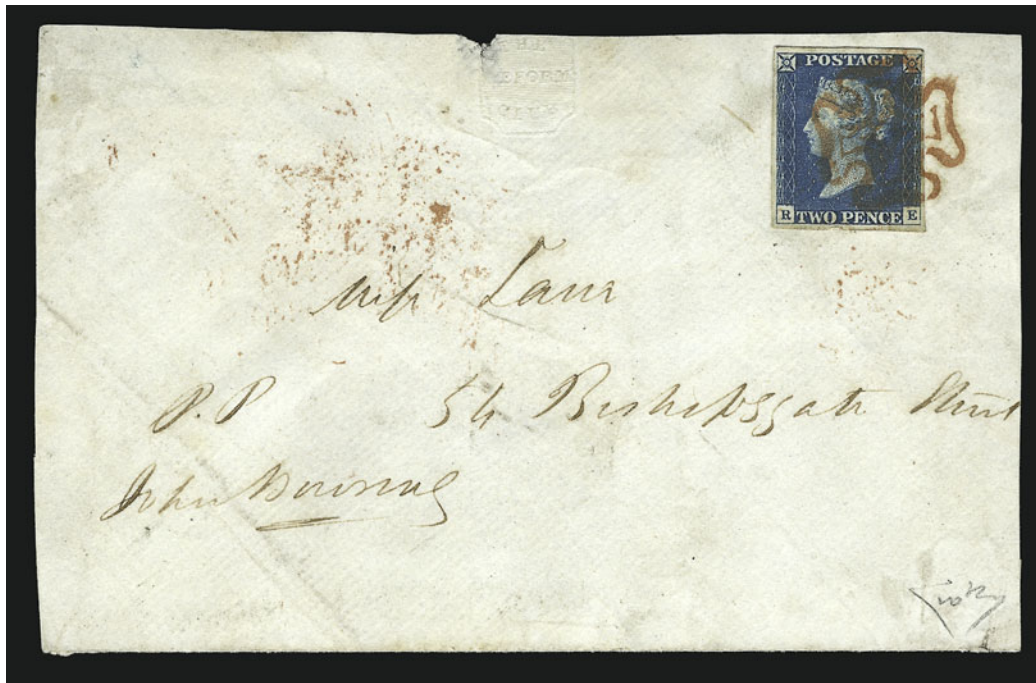 THE
REFORM
CLUB
POSTAGE
R TWO PENCE E
Lane
P.P 54 Bishopsgate Street
John